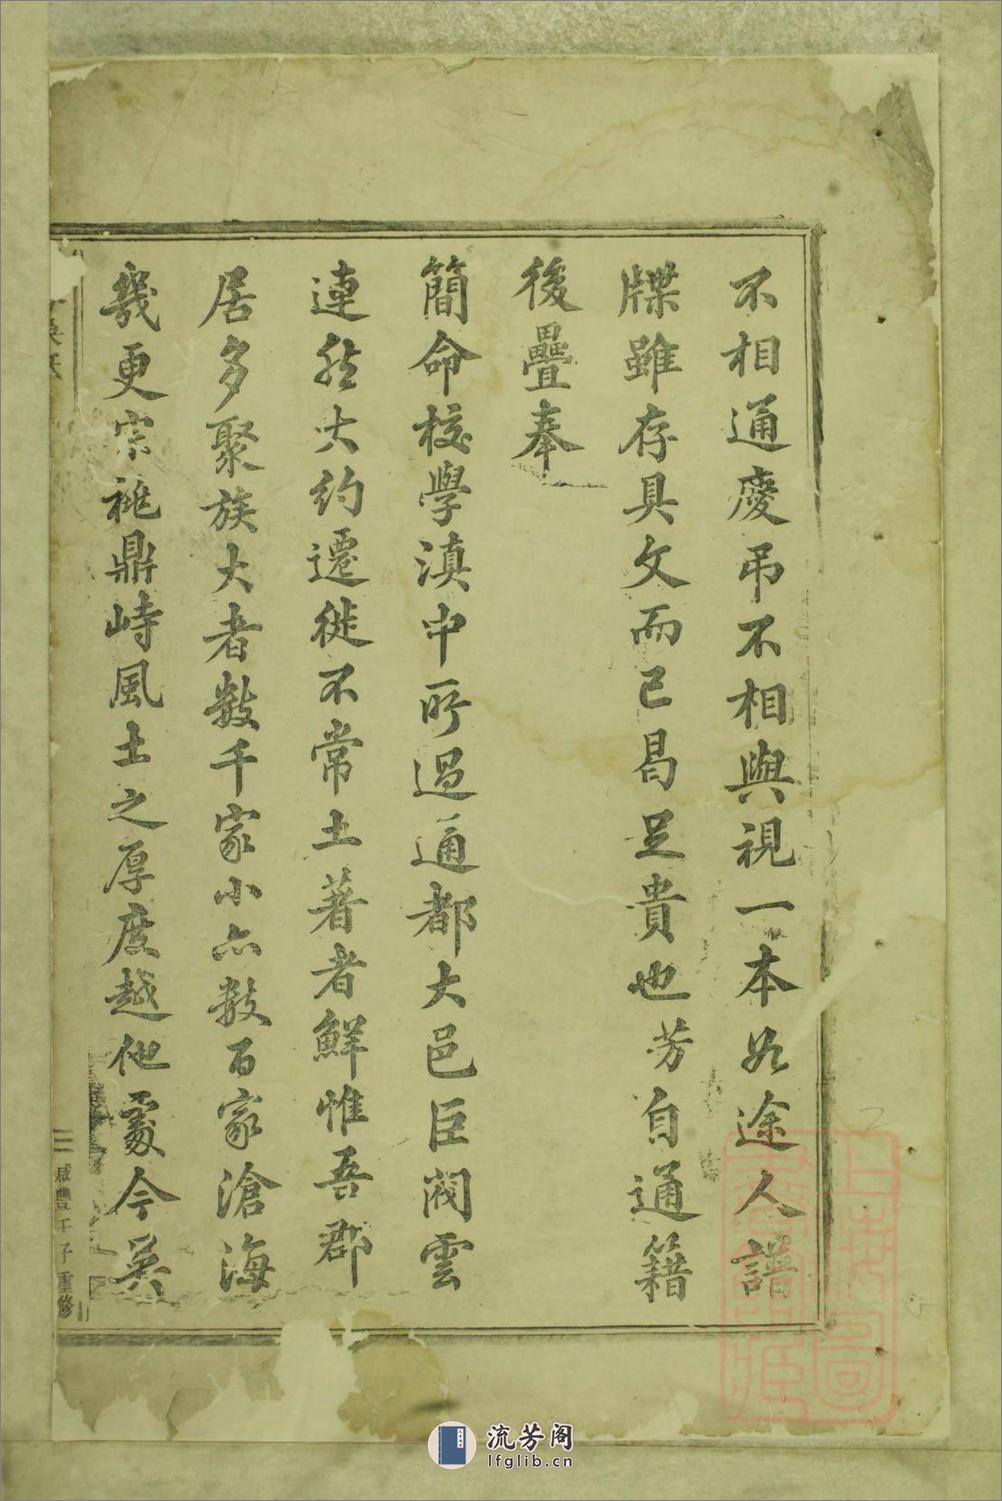 不相通慶弔不相與視一本如途人譜
牒雖存具文而已曷足貴也芳自通籍
後疊奉
簡命校學滇中所過通都大邑巨閥雲
連然大約遷徙不常土著者鮮惟吾郡
居多聚族大者數千家小亦數百家滄海
幾更宗祧鼎峙風土之厚度越他處今吳
三 咸豐壬子重修
上海圖書館藏
流芳阁
lfglib.cn